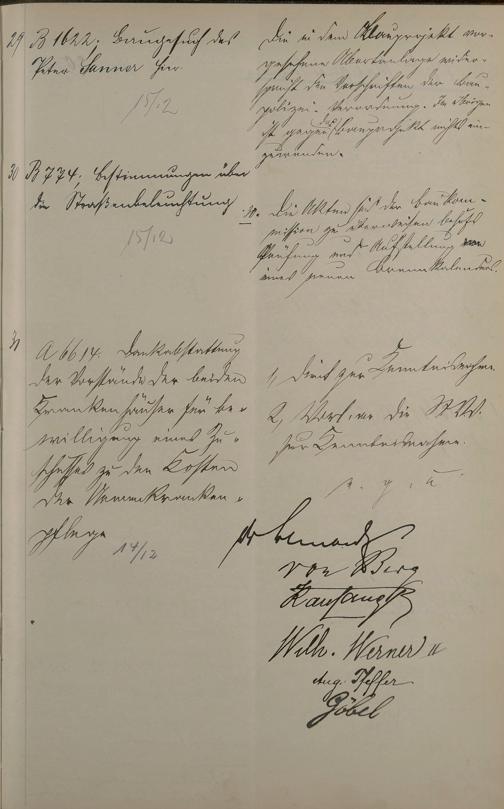 29 B 1622. Baugesuch des
Peter Sanner hier
15/12
Die in dem Bauprojekt vor-
gesehene Abortanlage wider-
spricht den Vorschriften der Bau-
polizei-Verordnung. Im Übrigen
ist gegen das Bauprojekt nichts ein-
zuwenden.
30 B 774. Bestimmungen über
die Straßenbeleuchtung
15/12
30. Die Akten sind der Baukom-
mission zu überweisen behufs
Prüfung und Aufstellung
eines neuen Brennkalenders.
31 A 6614. Dankabstattung
der Vorstände der beiden
Krankenhäuser für be-
willigung eines Zu-
schusses zu den Kosten
der Armenkranken-
pflege
14/12
1, dient zur Kenntnisnahme.
2, Vorl. an die StVV.
zur Kenntnisnahme.
v. g. u.
von Berg
Wilh. Werner II
Aug. Pfeffer
Göbel